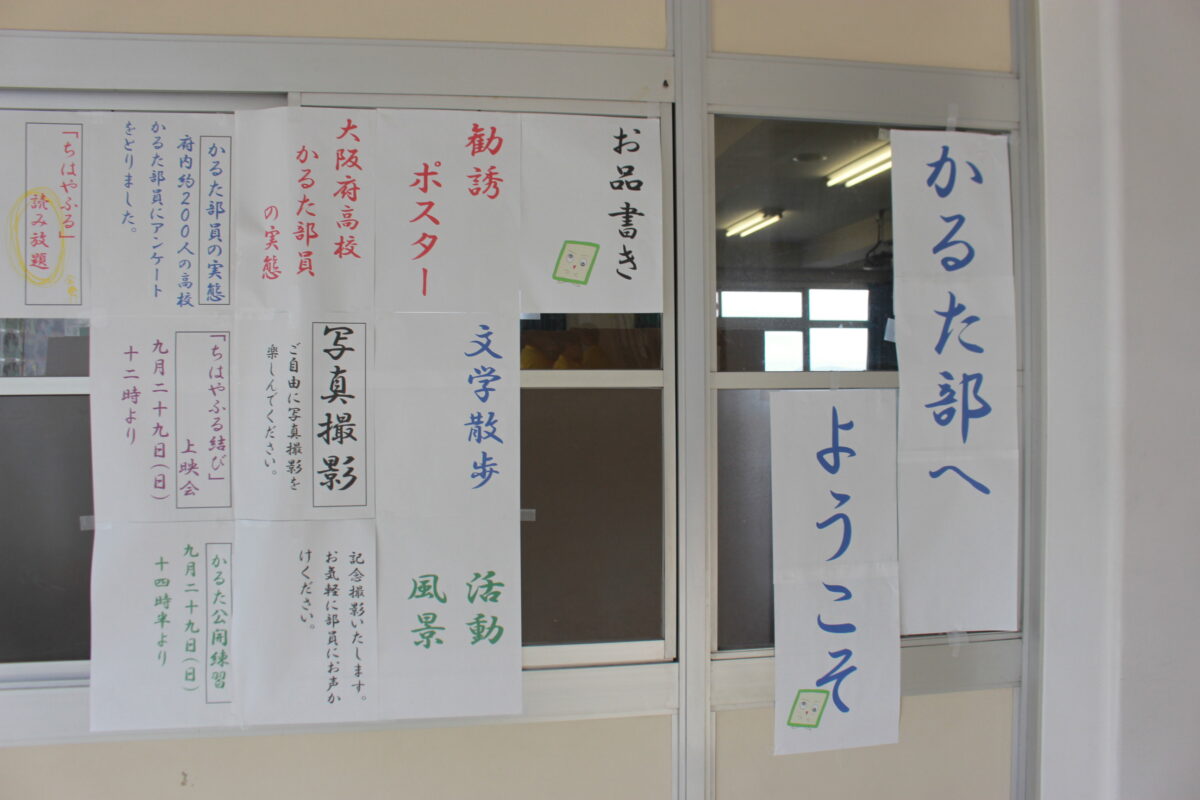 かるた部へ
ようこそ
お品書き
勧誘
ポスター
文学散歩
活動
風景
大阪府高校
かるた部員
の実態
写真撮影
ご自由に写真撮影を
楽しんでください。
記念撮影いたします。
お気軽に部員にお声か
けください。
かるた部員の実態
府内約200人の高校
かるた部員にアンケート
をとりました。
「ちはやふる結び」
上映会
九月二十九日(日)
十二時より
かるた公開練習
九月二十九日(日)
十四時半より
「ちはやふる」
読み放題